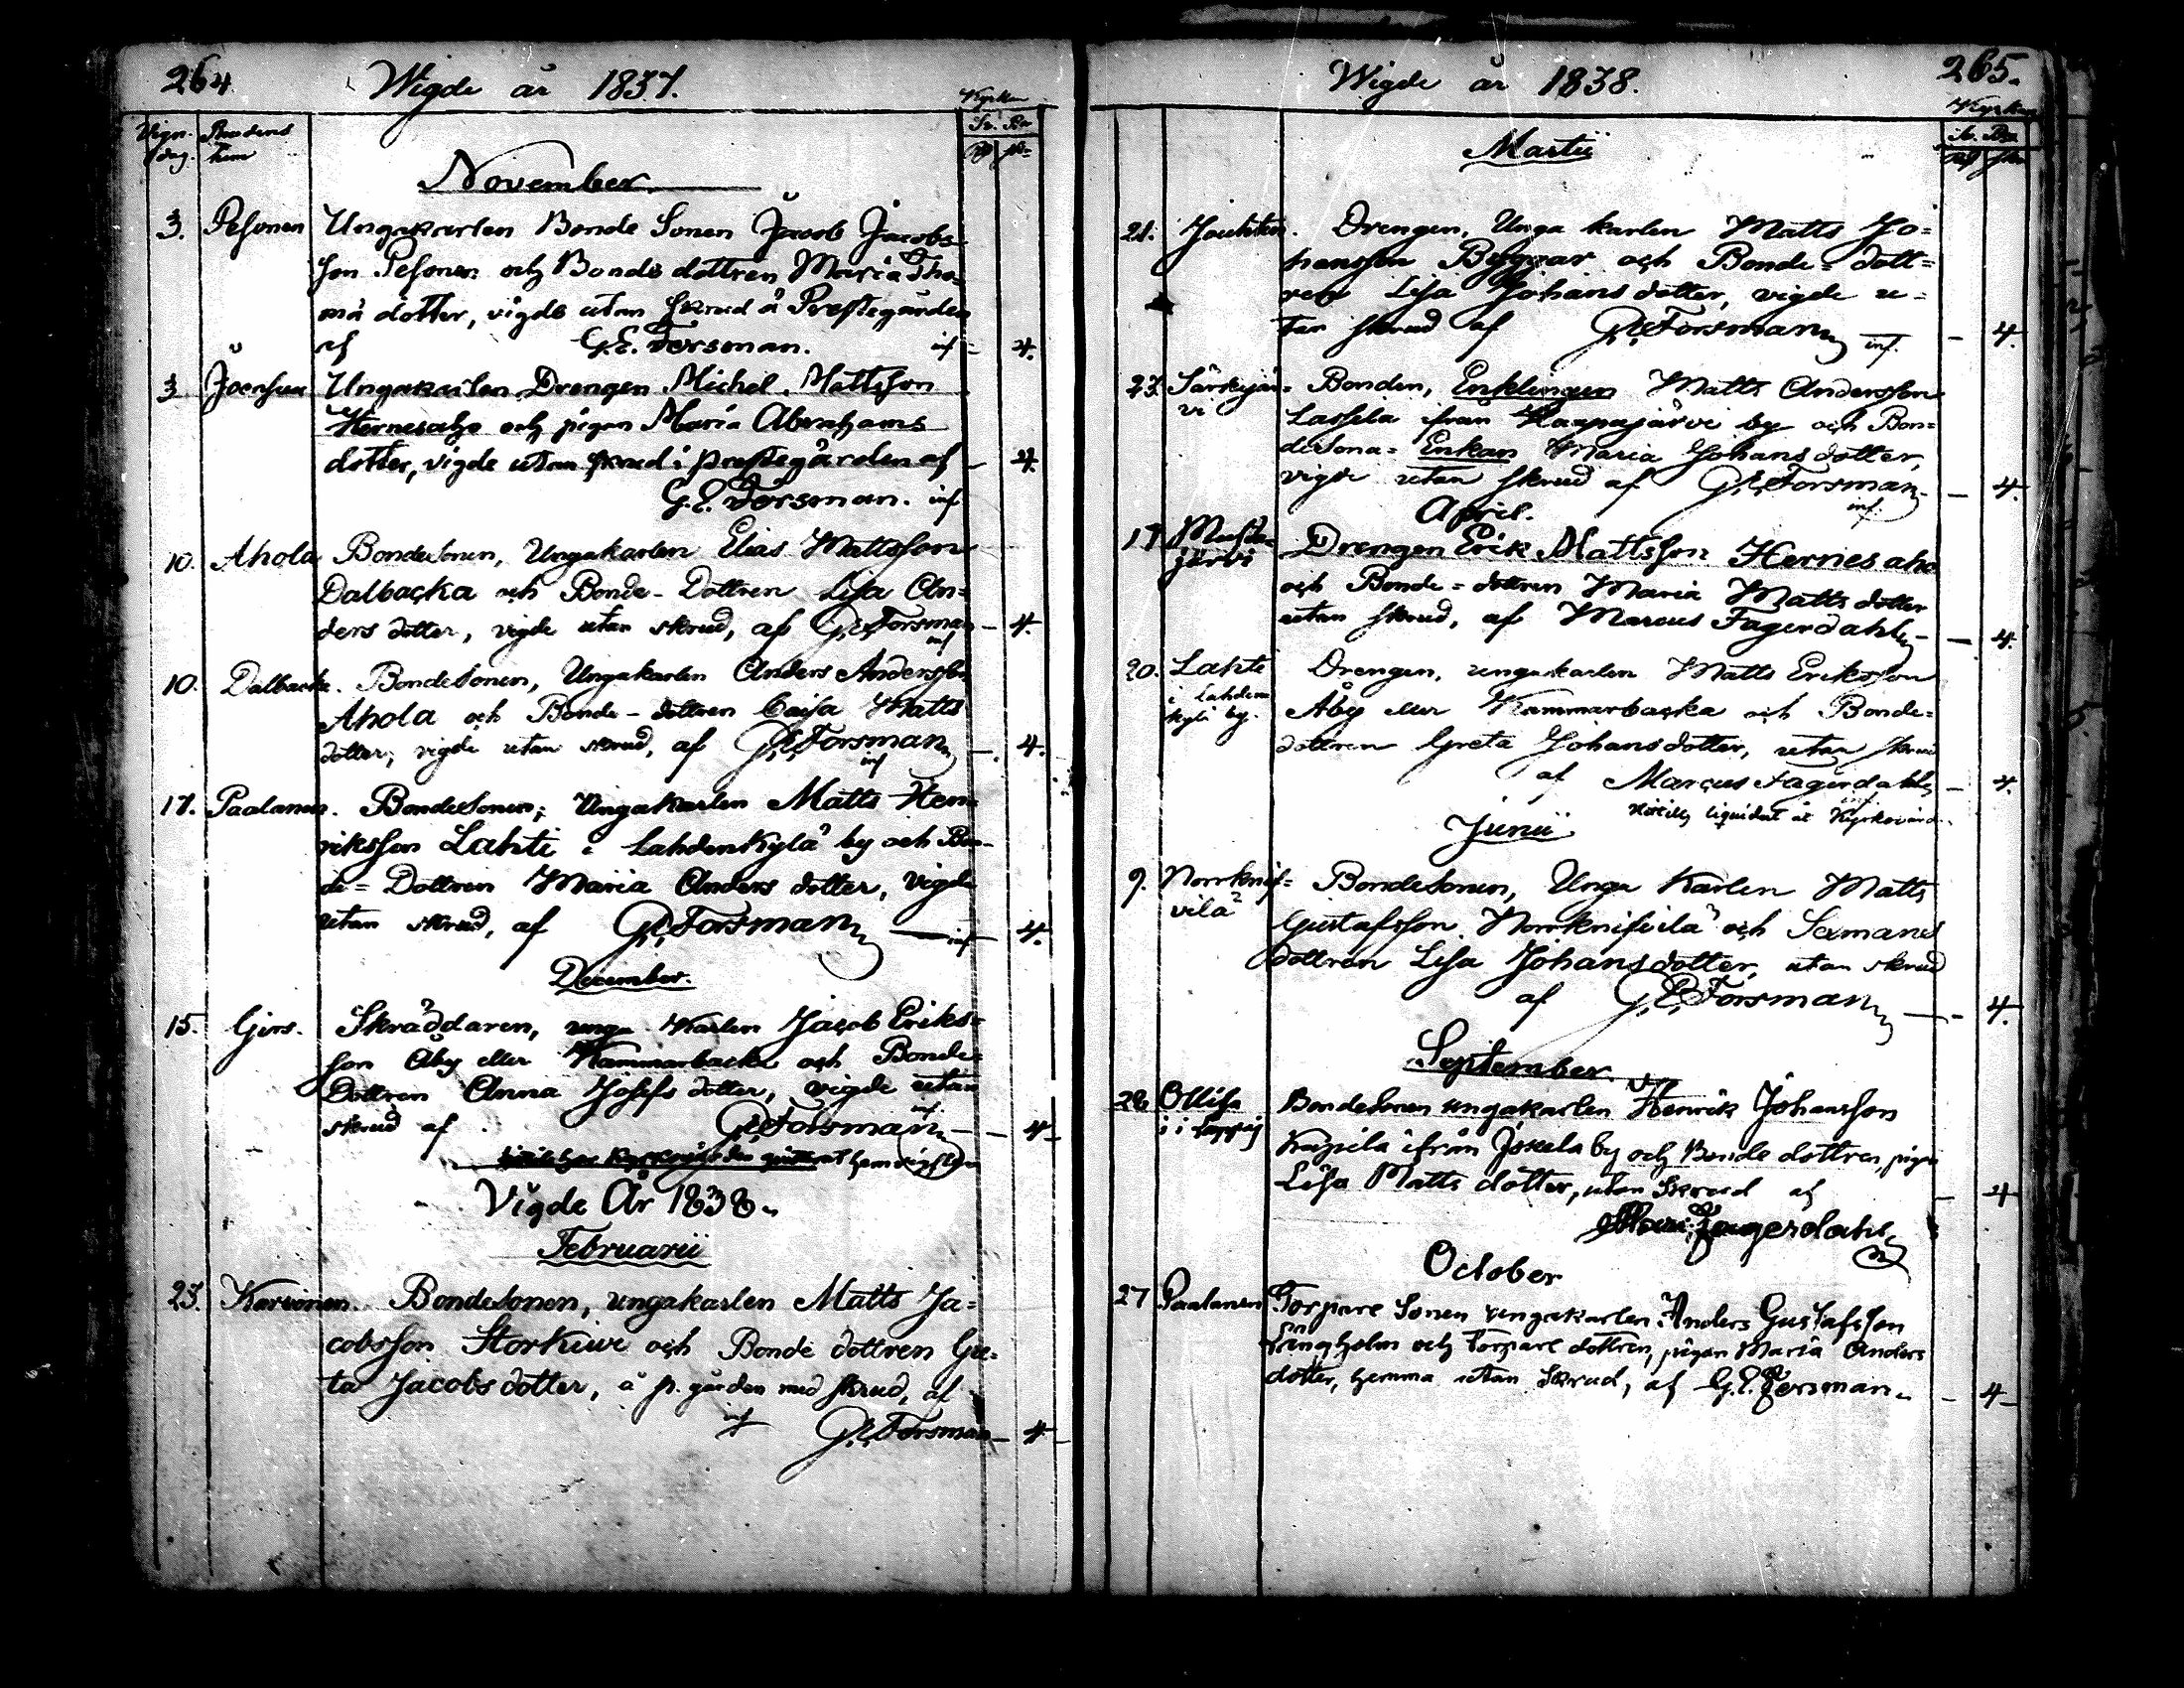 264
Wigde år 1837.
Kyrkan
Vign. Brudens
dag. hem
November.
3. Pesonen Ungakarlen Bonde Sonen Jacob Jacobs
son Pesonen och Bonde dottren Maria Tho-
mä dotter, vigde utan skrud å Prestegården
af G.E. Forsman. inf - 4.
3 Joensuu Ungakarlen Drengen Michel Mattsson
Hernesaho och pigan Maria Abrahams
dotter, vigde utan skrud i prestegården af - 4.
G.E. Forsman. inf
10. Ahola Bondesonen, Ungakarlen Elias Mattsson
Dalbacka och Bonde-Dottren Lisa An=
ders dotter, vigde utan skrud, af G.E. Forsman - 4.
inf
10. Dalbacka. Bondesonen, Ungakarlen Anders Andersson
Ahola och Bonde-dottren Caisa Matts
dotter, vigde utan skrud, af G.E. Forsman - 4.
inf
17. Paalanen. Bondesonen, Ungakarlen Matts Hen=
riksson Lahti i Lahdenkylä by och Bon-
de=Dottren Maria Anders dotter, vigde
utan skrud, af G.E. Forsman inf 4.
December.
15. Girs. Skräddaren, unga Karlen Jacob Eriks=
son Åby eller Kammarbacka och Bonde=
Dottren Anna Josefs dotter, vigde utan
inf.
skrud af G.E. Forsman - 4
Vigde År 1838.
Februarii
23. Karvonen. Bondesonen, ungakarlen Matts Ja=
cobsson Storkiwi och Bonde dottren Gre=
ta Jacobs dotter, å p. gården med skrud, af
inf G.E. Forsman - 4
265.
Wigde år 1838.
Kyrkan
Martii
21. Jouhten. Drengen, Unga karlen Matts Jo=
hansson Byggar och Bonde=dott=
ren Lisa Johans dotter, vigde u=
tan skrud af G.E. Forsman inf. - 4.
23. Särkijär= Bonden, Enklingen Matts Andersson
vi Lassila från Haapajärvi by och Bon=
desona=Enkan Maria Johans dotter,
vigde utan skrud af G.E. Forsman - 4.
inf.
April.
17 Musta- Drengen Erik Mattsson Hernesaho
järvi och Bonde=dottren Maria Matts dotter
utan skrud, af Marcus Fagerdahl - 4.
20. Lahti Drengen, ungakarlen Matts Eriksson
i Lahden Åby eller Kammarbacka och Bonde=
kylä by. dottren Greta Johans dotter, utan skrud
af Marcus Fagerdahl - 4.
liquidat
Junii
9. Norrknif= Bondesonen, Unga Karlen Matts
vilä Gustafsson Norrknifvilä och Sexmans
dottren Lisa Johans dotter, utan skrud
af G.E. Forsman - 4.
September.
28 Bondesonen ungakarlen Henrik Johansson
Krapila ifrån Jskala by och Bonde dottren, pigan
Lisa Matts dotter, utan Skrud af - 4
Fagerdahl
October
27 Paalanen Torpare Sonen ungakarlen Anders Gustafsson
Långholm och Torpare dottren, pigan Maria Anders
dotter, hemma utan Skrud, af G.E. Forsman - 4